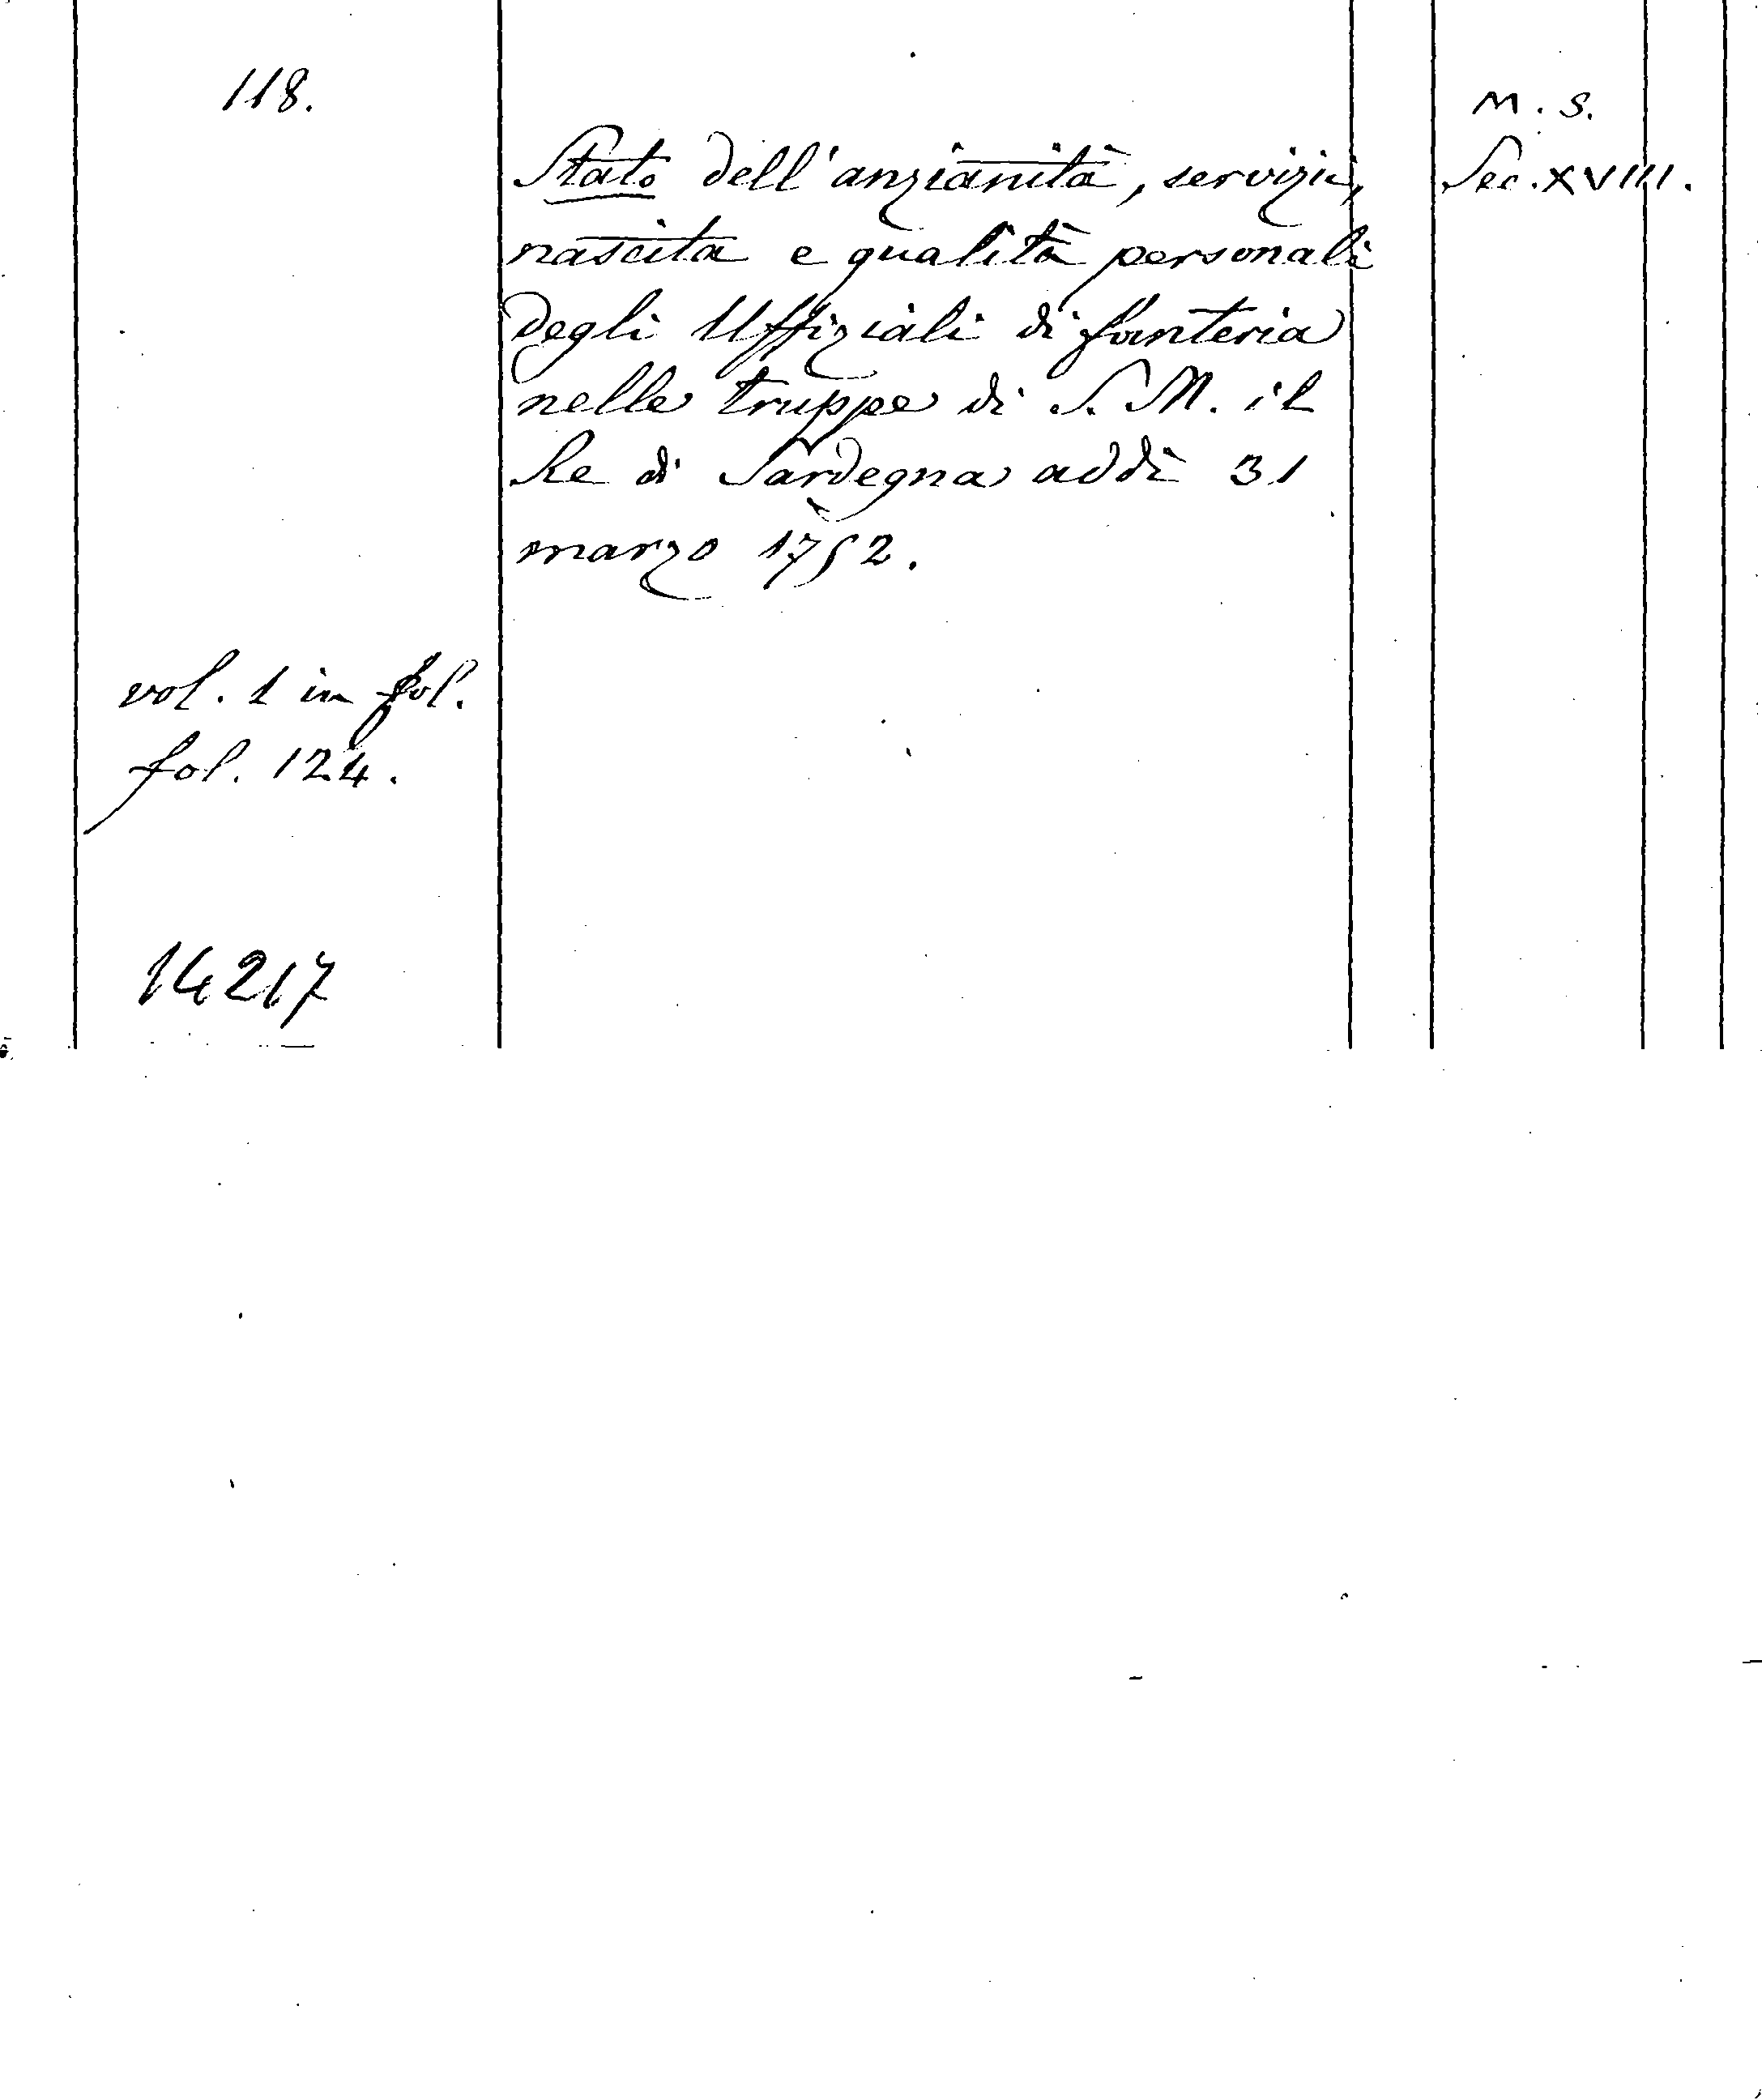 118.
M. S.
Sec. XVIII.
Stato dell'anzianità, servizii,
nascita e qualità personali
degli Uffiziali di fanteria
nelle truppe di S. M. il
Re di Sardegna addì 31
marzo 1752.
vol. 1 in fol.
fol. 124.
14217